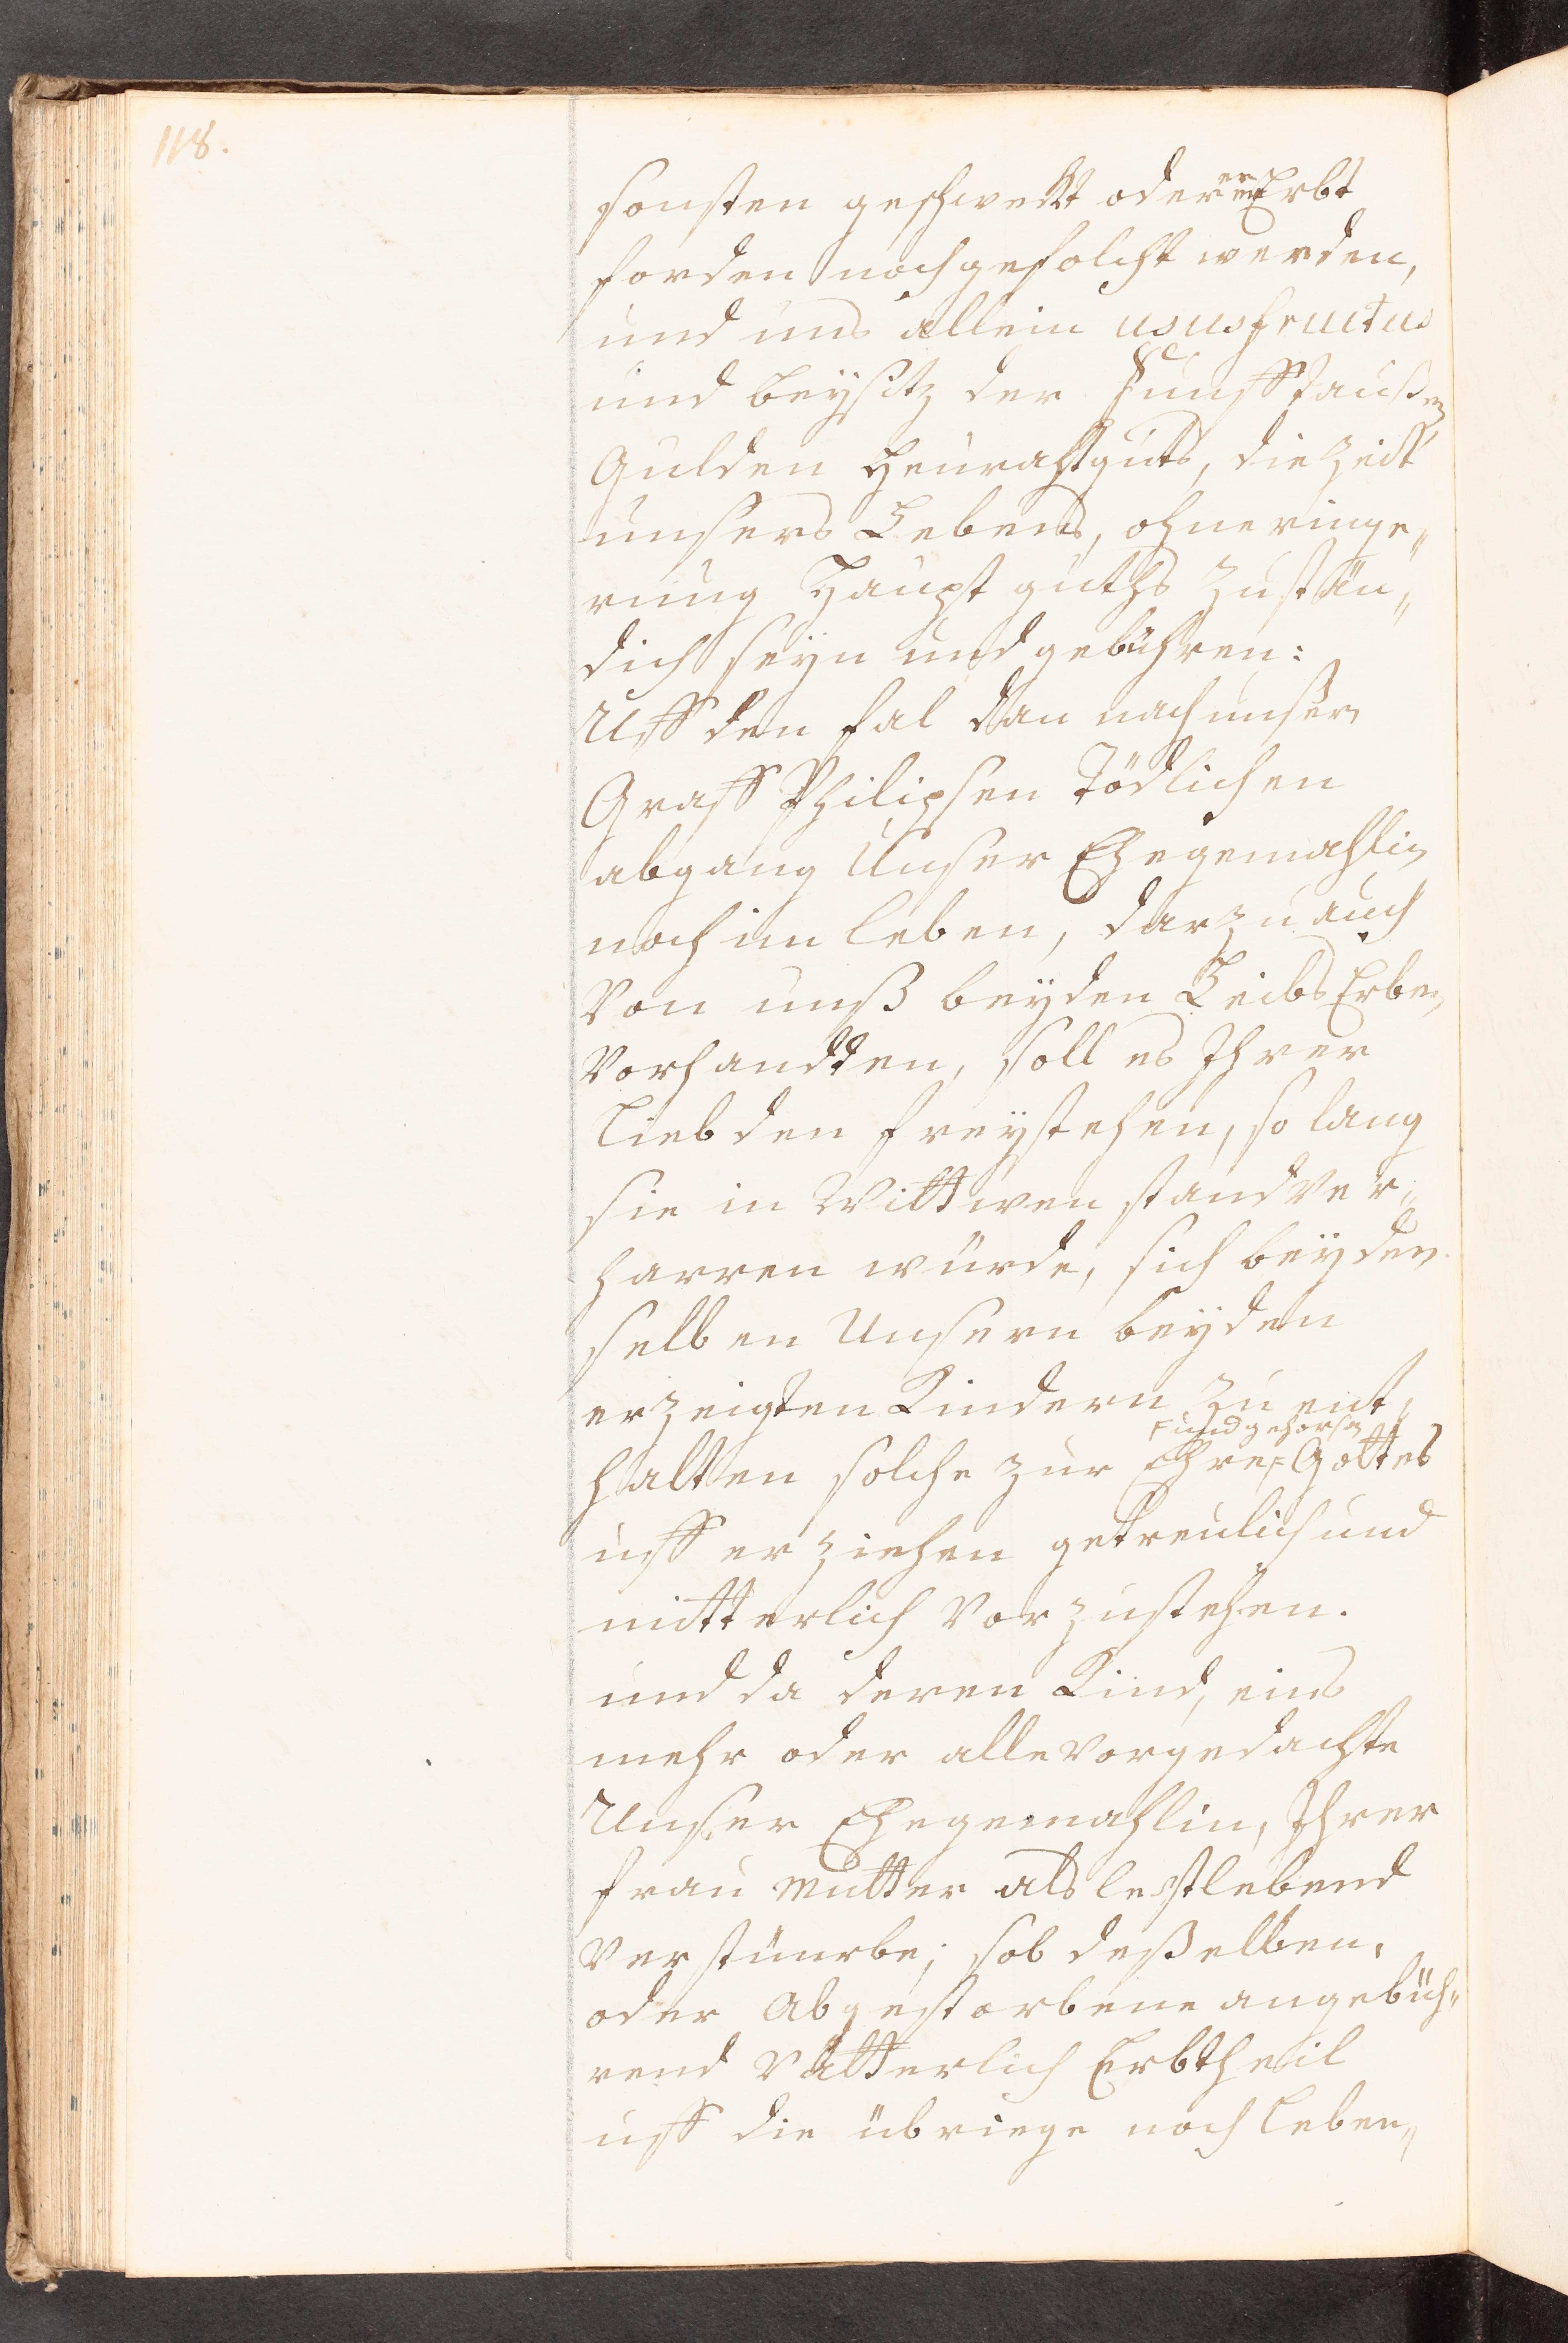 118.
sonsten geschweckt oder ererbt
forden nochgefolcht werden,
und uns allein ususfructus
und beysitz der Funfftaußen
Gulden Heurahtguts, die Zeitt
unsers Lebens, ohne ringe„
rung Haupt guths zustän„
dich seyn und gebühren:
Uff den fal dan nach unsern
Graff Philipsen Tödlichen
abgang Unser Ehegemahlin
noch im leben, darzu auch
Von unß beyden Leibs Erben
Vorhandten, soll es Ihrer
Liebden freystehen, so lang
sie in Wittwen standt ver„
harren würde, sich bey den
selben Unsern beyden
erzeigten Kindern zu ent„
F und gehorsn
halten solche zur Ehre F Gottes
uff erziehen getreulich und
mitterlich Vorzustehen.
und da deren Kind, eins
mehr oder alle vorgedachte
Unser Ehegemahlin, Ihrer
frau Mutter als lestlebend
Verstürbe; sol deßelben,
oder Abgestorbene angebüh„
rend Vätterlich Erbtheil
uff die übriege noch leben„